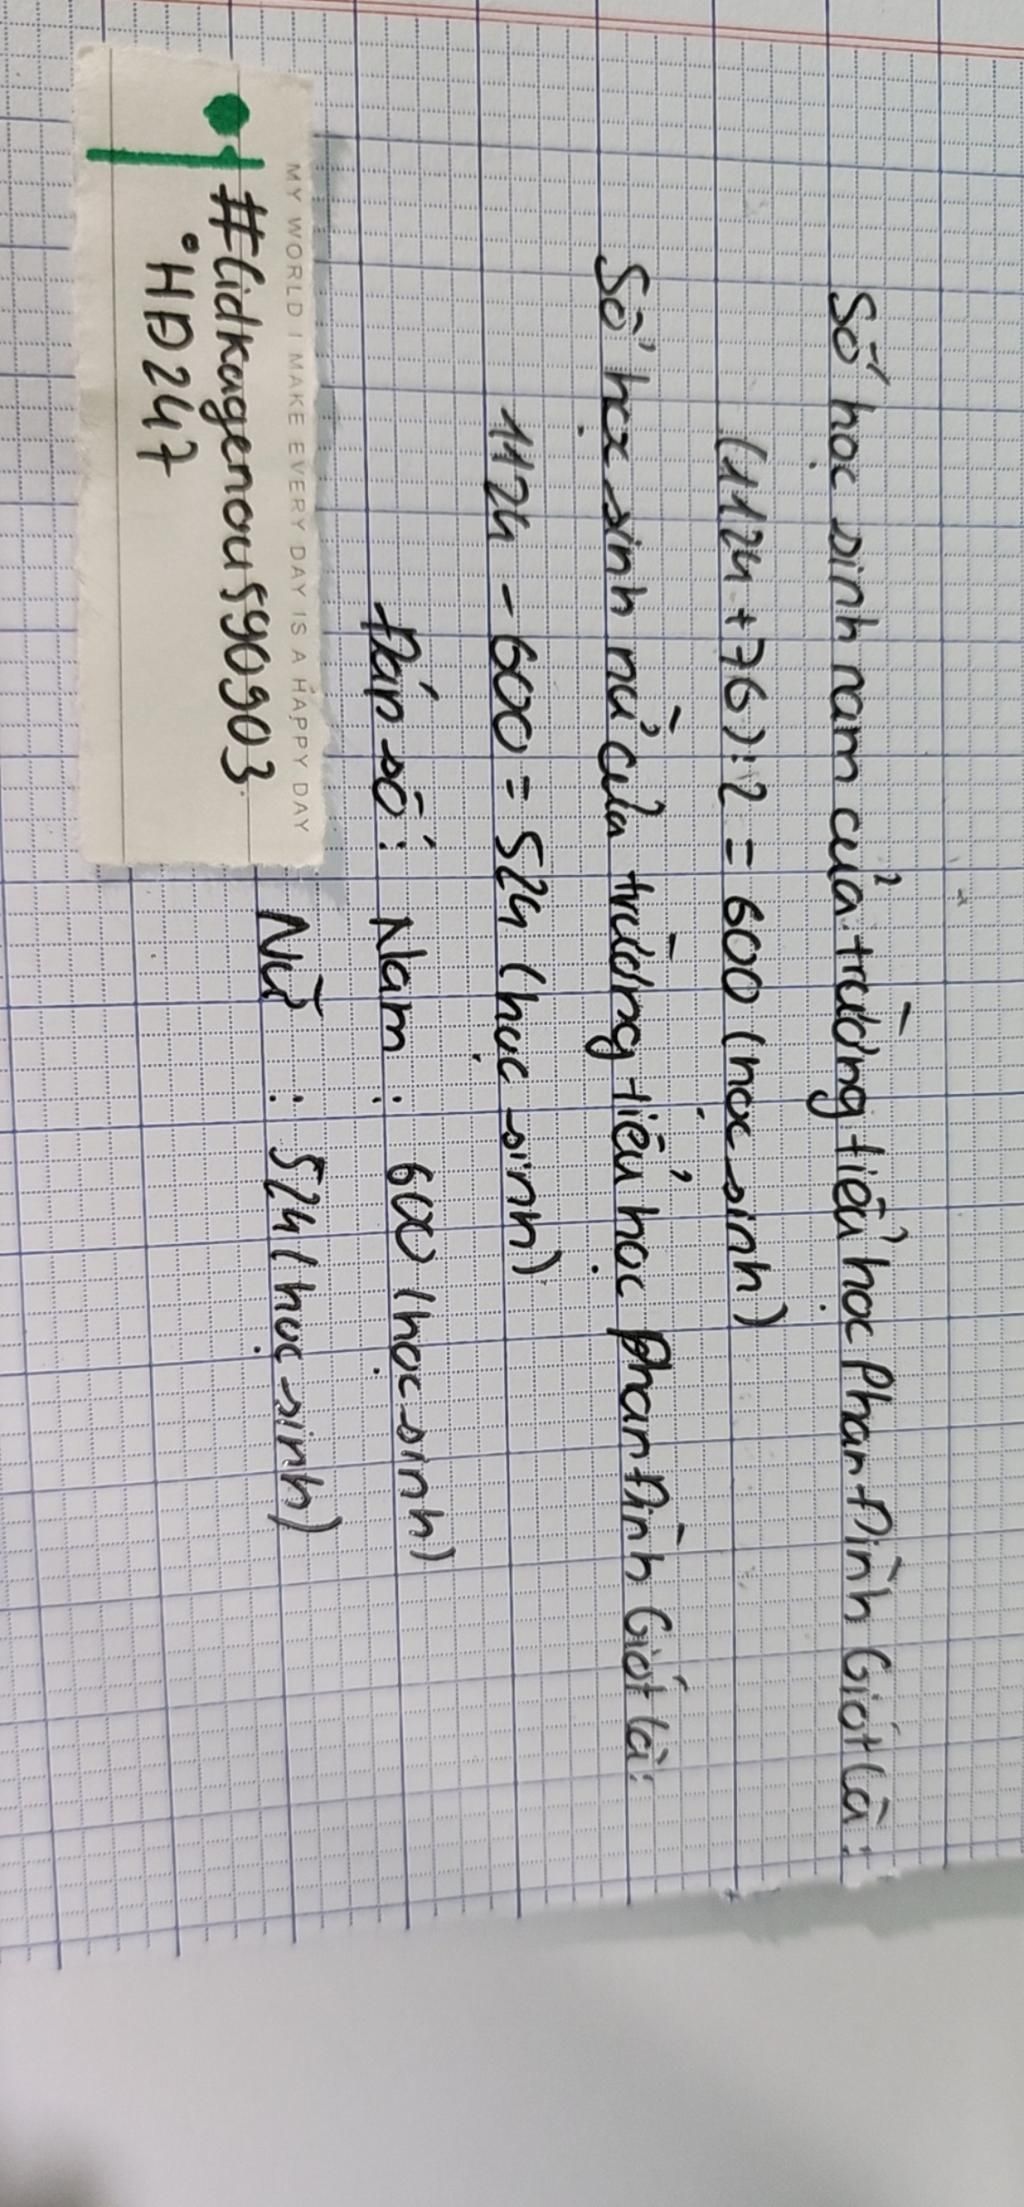 Số học sinh nam của trường tiểu học Phan Đình Giót là:
(1124 + 76) : 2 = 600 (học sinh)
Số học sinh nữ của trường tiểu học Phan Đình Giót là:
1124 - 600 = 524 (học sinh)
Đáp số: Nam : 600 (học sinh)
Nữ : 524 (học sinh)
MY WORLD I MAKE EVERY DAY IS A HAPPY DAY
#Cidkagenou590903.
•HĐ247